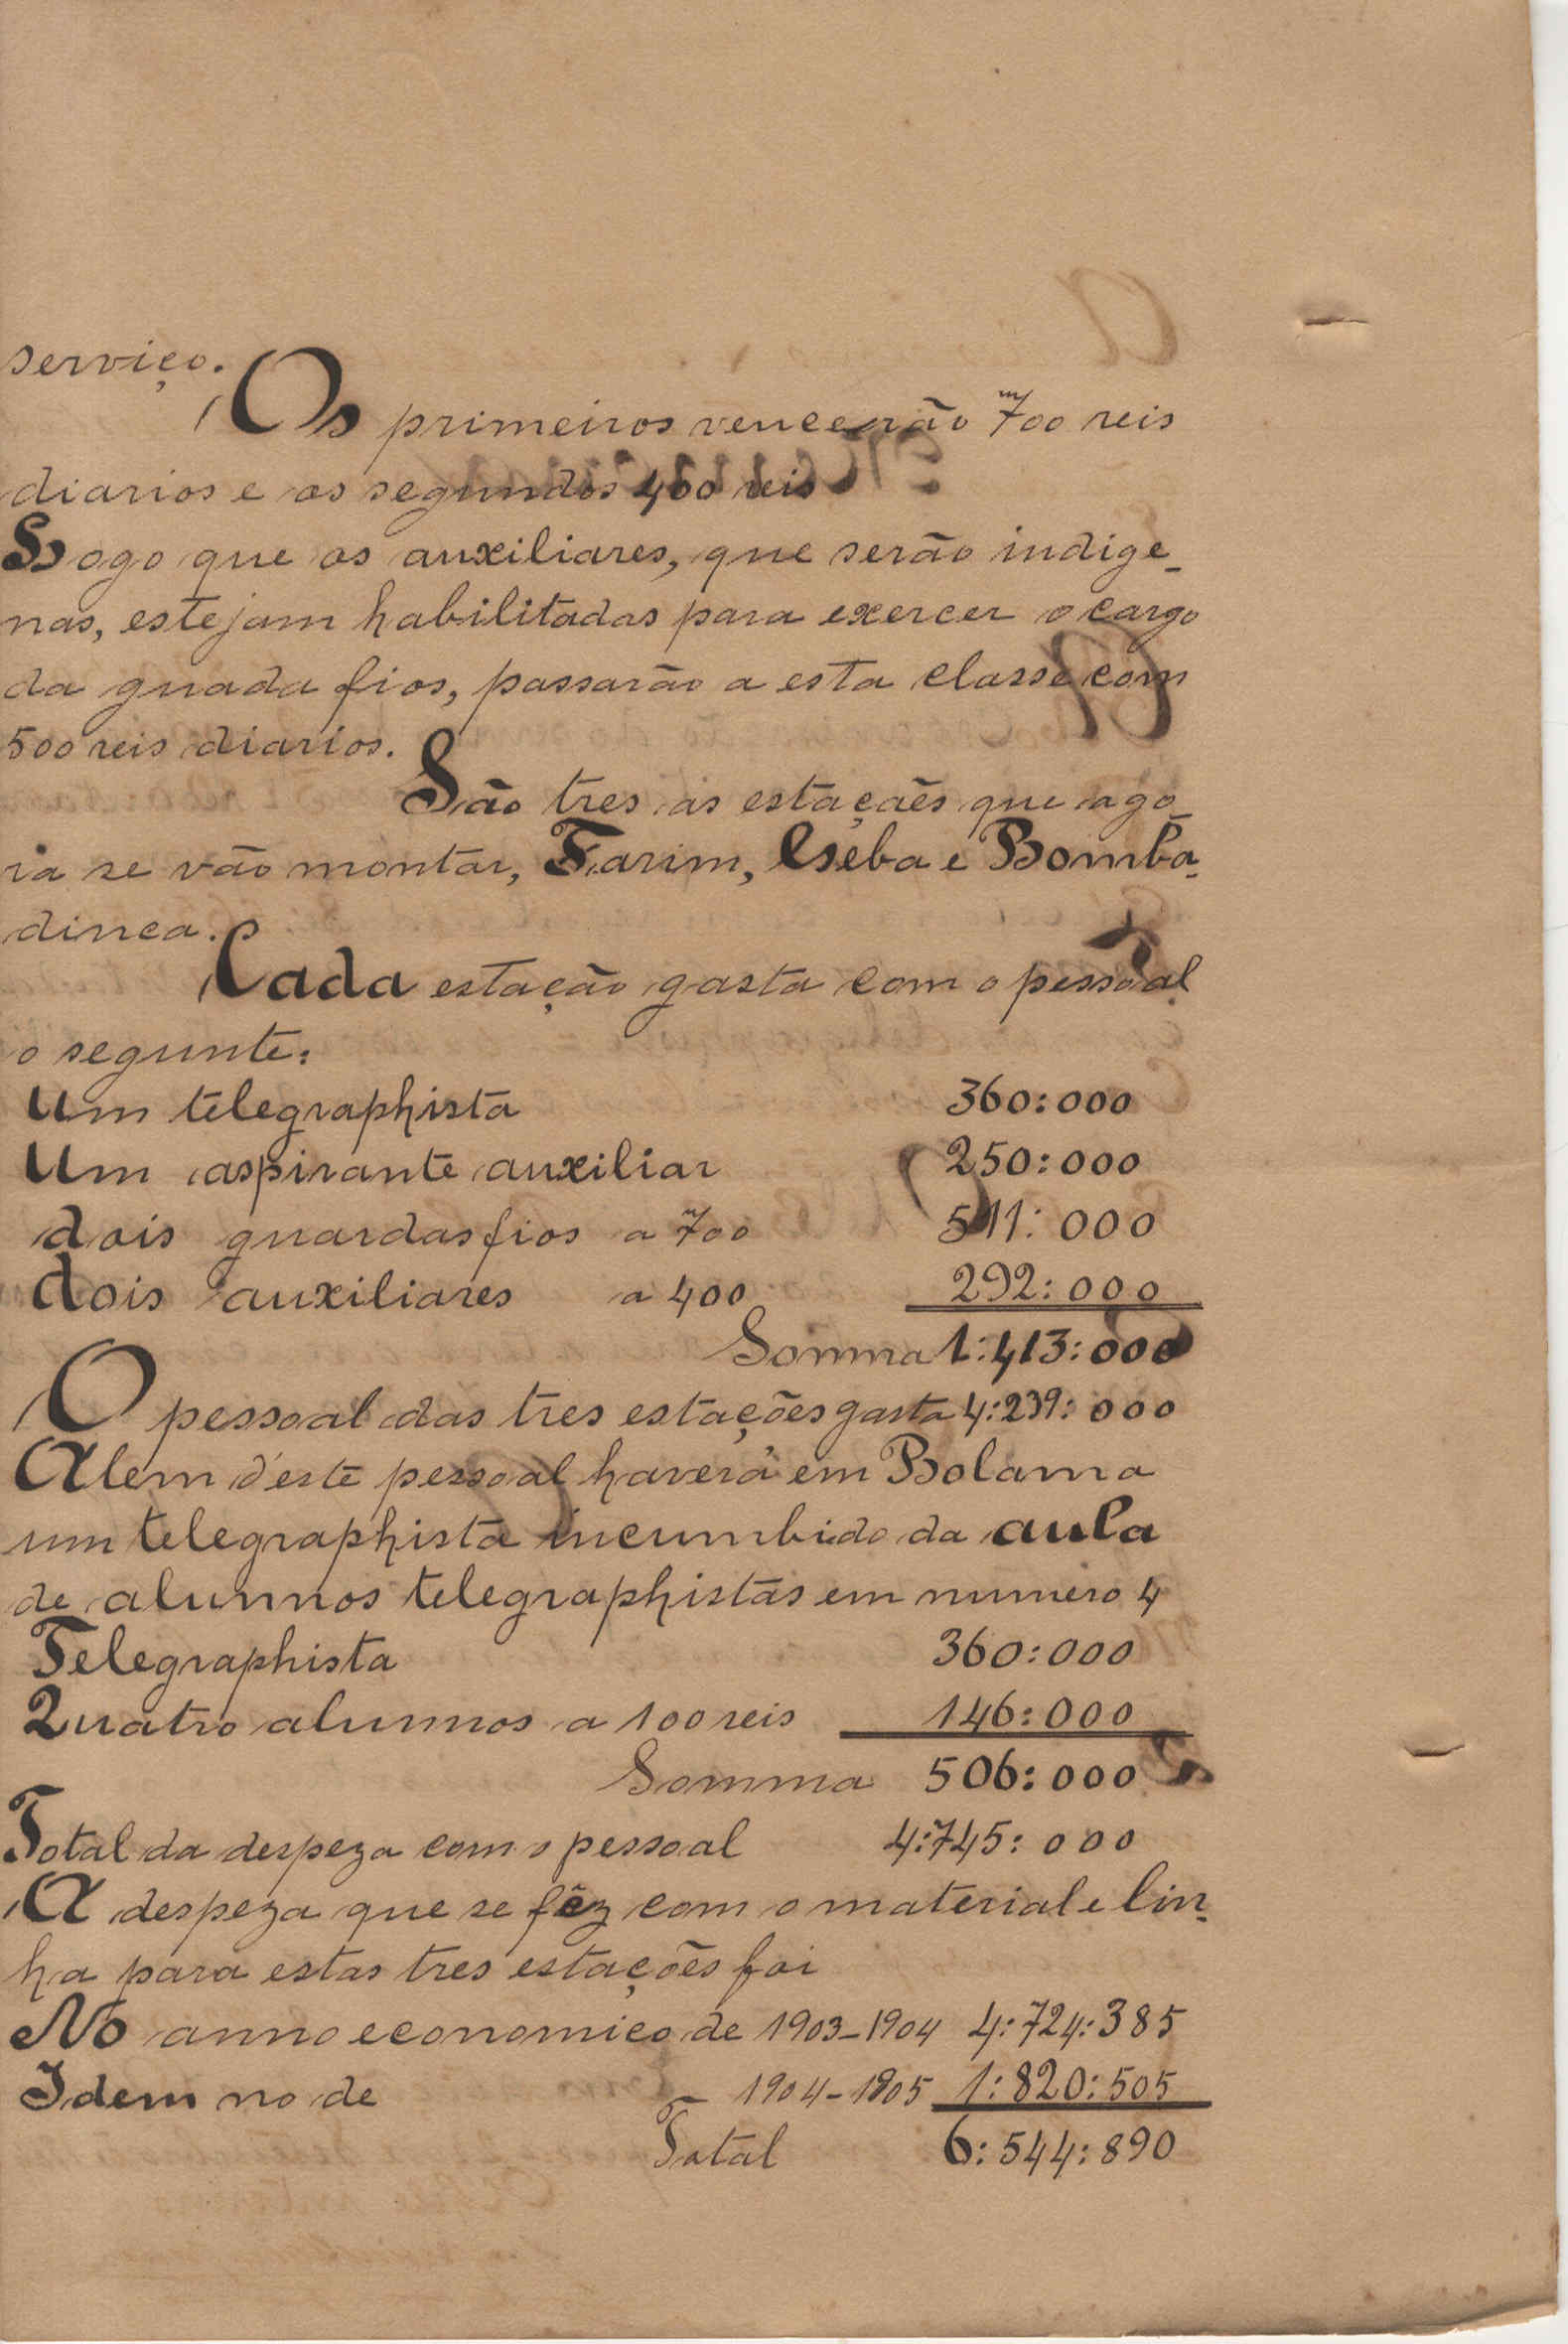 serviço.
Os primeiros vencerão 700 reis
diarios e os segundos 400 reis
Logo que os auxiliares, que serão indige_
nas, estejam habilitados para exercer o cargo
da guada fios, passarão a esta classe com
500 reis diarios.
São tres as estações que ago_
ra se vão montar, Farim, Géba e Bomba_
dinca.
Cada estação gasta com o pessoal
o segunte:
Um telegraphista 360:000
Um aspirante auxiliar 250:000
dois guardasfios a 700 511:000
dois auxiliares a 400 292:000
Somma 1:413:000
O pessoal das tres estações gasta 4:239:000
Alem d'este pessoal haverá em Bolama
um telegraphista incumbido da aula
de alumnos telegraphistas em numero 4
Telegraphista 360:000
Quatro alumnos a 100 reis 146:000
Somma 506:000
Total da despeza com o pessoal 4:745:000
A despeza que se fêz com o material e lin_
ha para estas tres estações foi
No anno economico de 1903-1904 4:724:385
Idem no de 1904-1905 1:820:505
Total 6:544:890